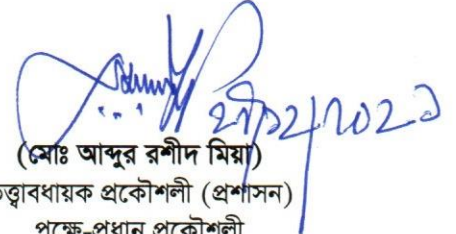 (মোঃ আব্দুর রশীদ মিয়া)
ত্ত্বাবধায়ক প্রকৌশলী (প্রশাসন)
পক্ষে-প্রধান প্রকৌশলী